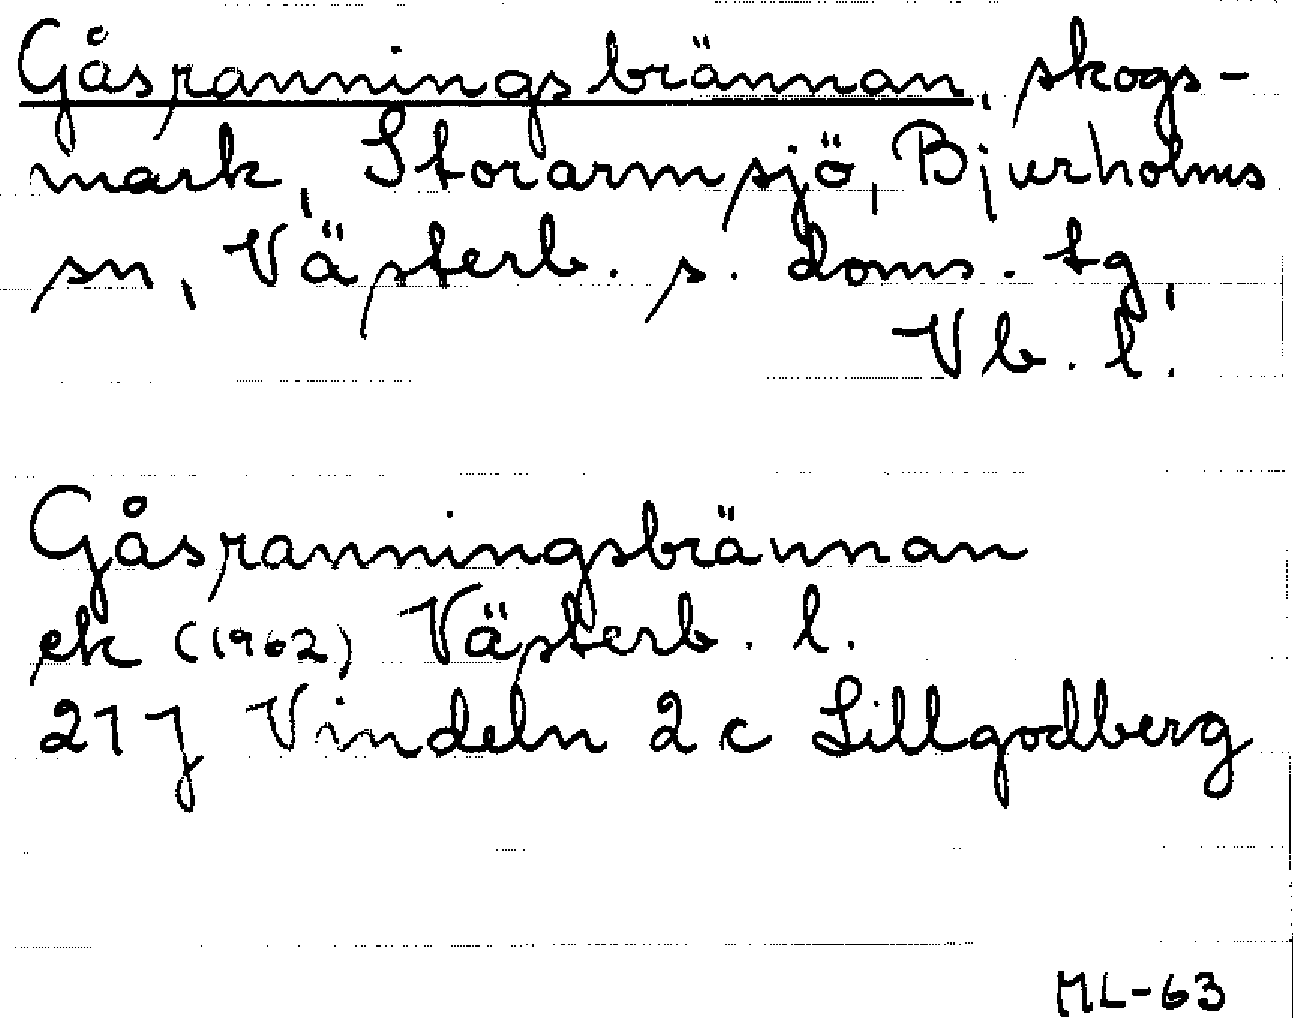 Gåsranningsbrännan, skogs-
mark, Storarmsjö, Bjurholms
sn, Västerb. s. doms. tg,
Vb. l.
Gåsranningsbrännan
ek (1962) Västerb. l.
21 J Vindeln 2 c Lillgodberg
ML-63